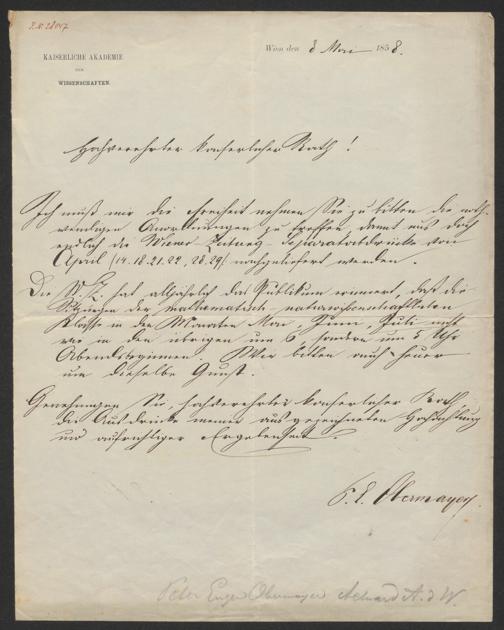 KAISERLICHE AKADEMIE
DER
WISSENSCHAFTEN.
Wien den 8 Mai 1858.
Hochverehrter kaiserlicher Rath!
Ich muß mir die Freiheit nehmen Sie zu bitten die noth-
wendigen Anordnungen zu treffen, damit uns doch
endlich die Wiener Zeitungs-Separatabdrücke von
April /14. 18. 21. 22, 28. 29/ nachgeliefert werden.
Die W. Z. hat alljährlich das Publikum erinnert, daß die
Sitzungen der mathematisch naturwissenschaftlichen
Klasse in den Monaten Mai, Juni, Juli nicht
wie in den übrigen um 6, sondern um 5 Uhr
Abends beginnen. Wir bitten auch heuer
um dieselbe Gunst.
Genehmigen Sie, hochverehrter kaiserlicher Rath,
den Ausdruck meiner ausgezeichneten Hochachtung
und aufrichtiger Ergebenheit.
P. E. Obermayer.
Peter Eugen Obermayer Actuar d A. d W.